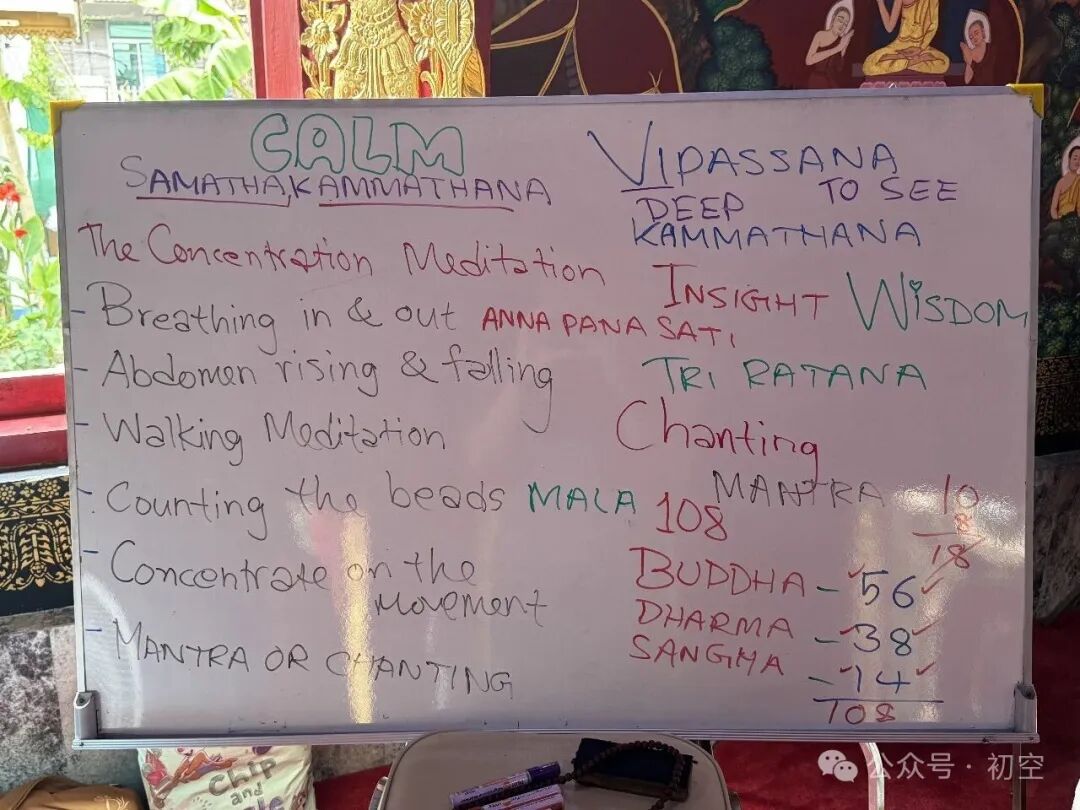 CALM
SAMATHA KAMMATHANA
The Concentration Meditation
- Breathing in & out ANNA PANA SATI
- Abdomen rising & falling
- Walking Meditation
- Counting the beads MALA 108
- Concentrate on the
Movement
- MANTRA OR CHANTING
VIPASSANA
DEEP TO SEE
KAMMATHANA
INSIGHT WISDOM
TRI RATANA
Chanting
MANTRA
10
8
18
BUDDHA - 56
DHARMA - 38
SANGHA - 14
108
Chip
and
公众号 · 初空